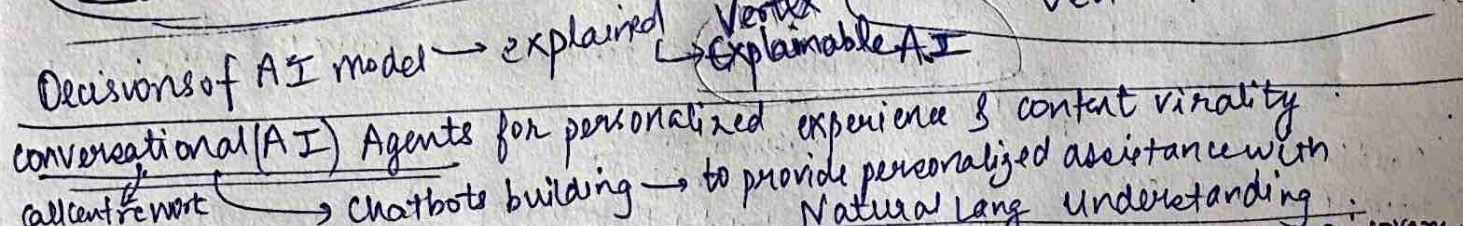 Decisions of AI model → explained
Vertex
↳ Explainable AI
conversational (AI) Agents for personalized experience & content virality.
call centre work
→ Chatbots building → to provide personalized assistance with
Natural Lang Understanding